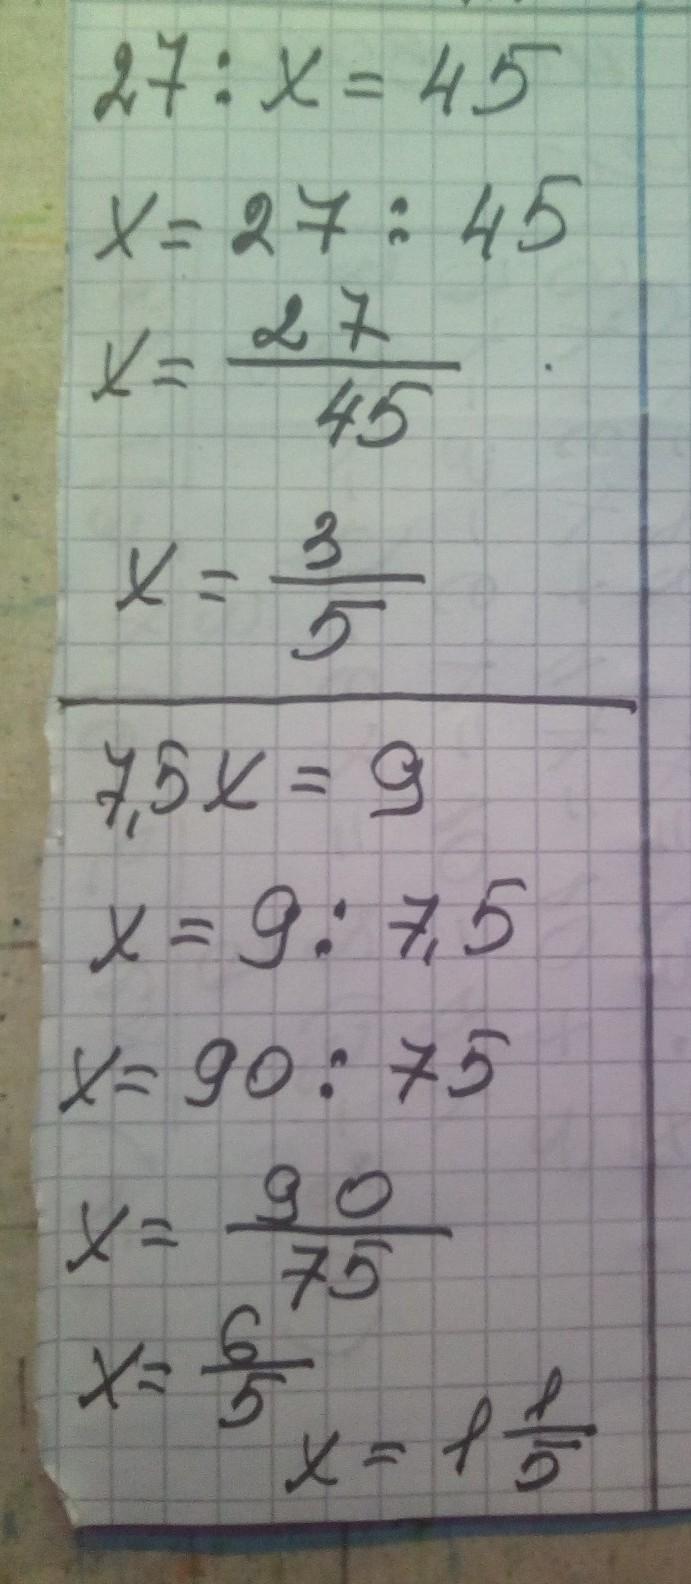 27 : x = 45
x = 27 : 45
x = 27/45
x = 3/5
7,5x = 9
x = 9 : 7,5
x = 90 : 75
x = 90/75
x = 6/5
x = 1 1/5